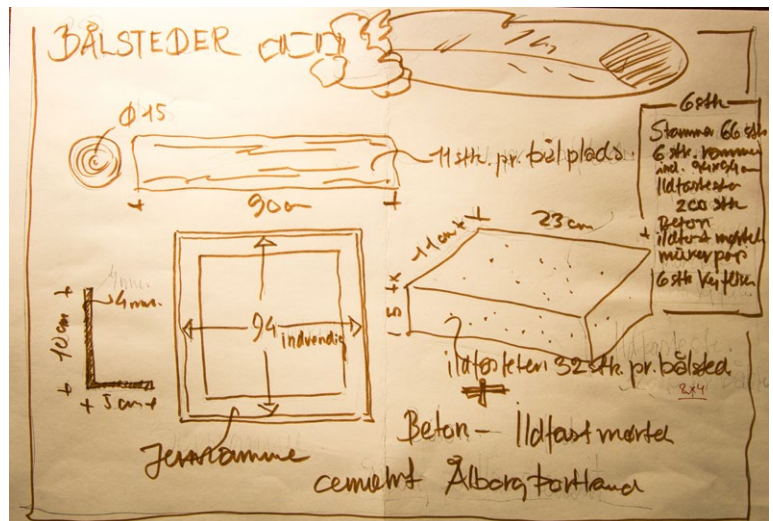 BÅLSTEDER
Ø 15
11 stk. pr. bål plads
90 cm
6 stk
Stammer 66 stk
6 stk. rammer
ind. 94x94 cm
Ildfastesten
200 stk
Beton
ildfast mørtel
murerpap
6 stk
4 mm.
10 cm
5 cm
94
indvendig
Jernramme
11 cm
23 cm
5
ildfaststen 32 stk. pr. bålsted
8x4
Beton - Ildfast mørtel
cement Ålborg Portland